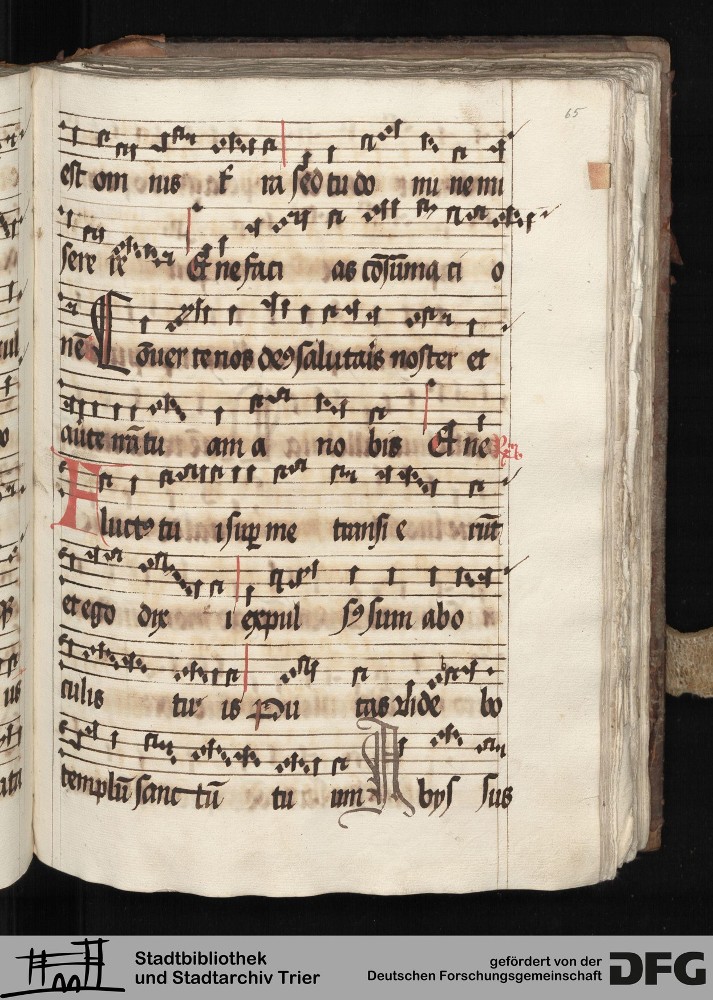 65
est om nis t̄ ra sed tu do mi ne mi
sere re Et ne faci as cōsūma ti o
nē Cōuer te nos deꝰ salutaīs noster et
auīte irā tu am a no bis Et ne
Fluctꝰ tu i suꝑ me transi e rūt
et ego dix i expul sꝰ sum ab o
culis tu is Pu tas vide bo
templū sanc tū tu um Abys sus
Stadtbibliothek
und Stadtarchiv Trier
gefördert von der
Deutschen Forschungsgemeinschaft
DFG